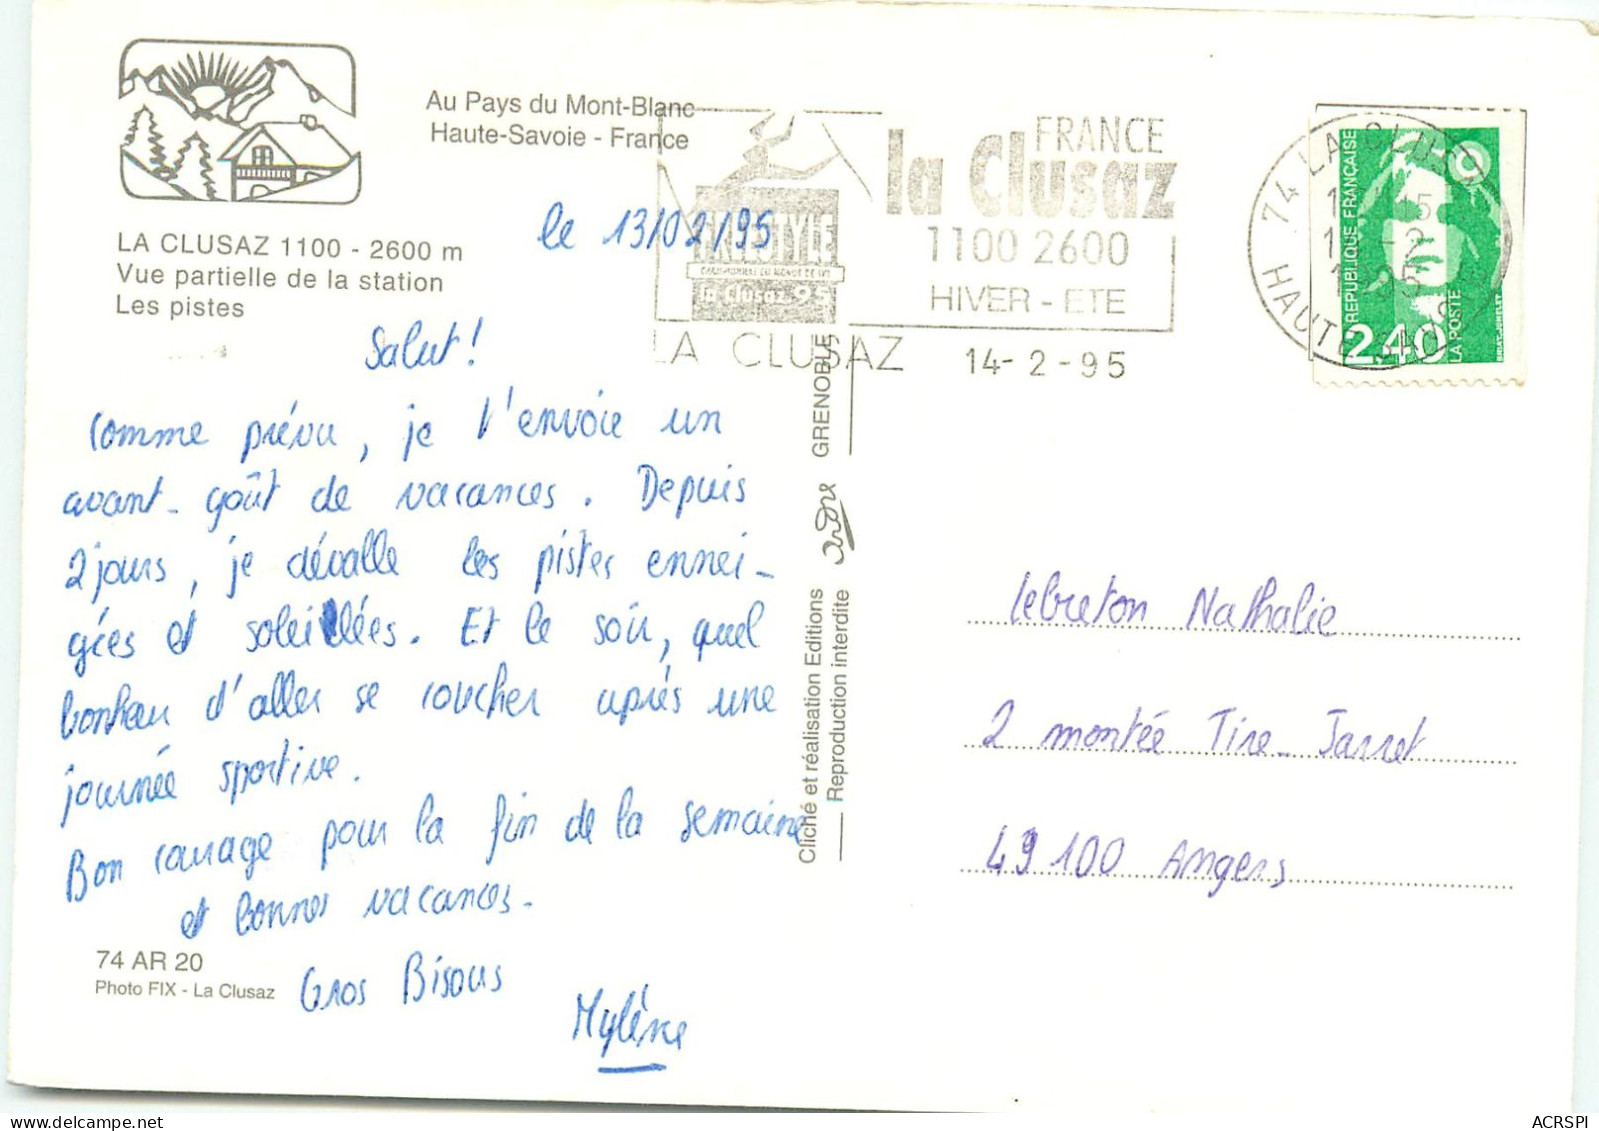 Au Pays du Mont-Blanc
Haute-Savoie - France
LA CLUSAZ 1100 - 2600 m
Vue partielle de la station
Les pistes
le 13/02/95
Salut !
Comme prévu, je t'envoie un
avant-goût de vacances. Depuis
2 jours, je dévalle les pistes ennei-
gées et soleillées. Et le soir, quel
bonheur d'aller se coucher après une
journée sportive.
Bon courage pour la fin de la semaine
et bonnes vacances.
Gros Bisous
Mylène
74 AR 20
Photo FIX - La Clusaz
Cliché et réalisation Editions
André
GRENOBLE
Reproduction interdite
FREESTYLE
CHAMPIONNAT DU MONDE DE SKI
la Clusaz 95
FRANCE
la Clusaz
1100 2600
HIVER - ETE
LA CLUSAZ 14-2-95
74 LA CLUSAZ
HAUTE SAVOIE
REPUBLIQUE FRANÇAISE
2,40
LA POSTE
Lebreton Nathalie
2 montée Tire-Jarret
49100 Angers
ACRSPI